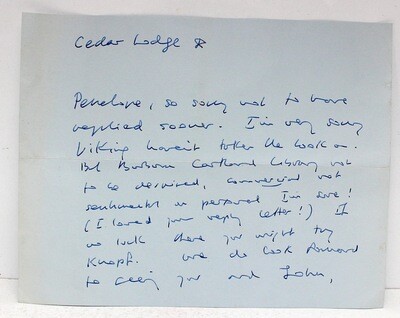 Cedar Lodge
Penelope, so sorry not to have
replied sooner. I'm very sorry
Viking haven't taken the book on.
But Barbara Cartland library not
to be despised, commercial not
sentimental or personal I'm sure!
(I loved your reply letter!) If
no luck there you might try
Knopf. We do look forward
to seeing you and John,